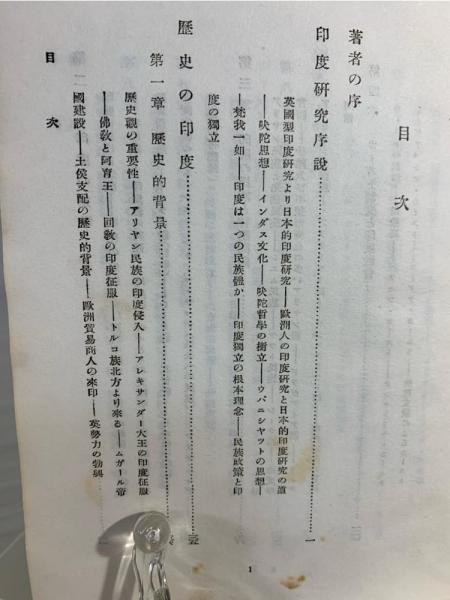 目次
著者の序
印度研究序說……一
英國型印度研究より日本的印度研究──歐洲人の印度研究と日本的印度研究の道
──吠陀思想──インダス文化──吠陀哲學の樹立──ウパニシャットの思想──
──梵我一如──印度は一つの民族體か──印度獨立の根本理念──民族政策と印
度の獨立
歷史の印度……
第一章 歷史的背景……
歷史觀の重要性──アリヤン民族の印度侵入──アレキサンダー大王の印度征服
──佛敎と阿育王──回敎の印度征服──トルコ族北方より來る──ムガール帝
國建設──土侯支配の歷史的背景──歐洲貿易商人の來印──英勢力の勃興
目次
1